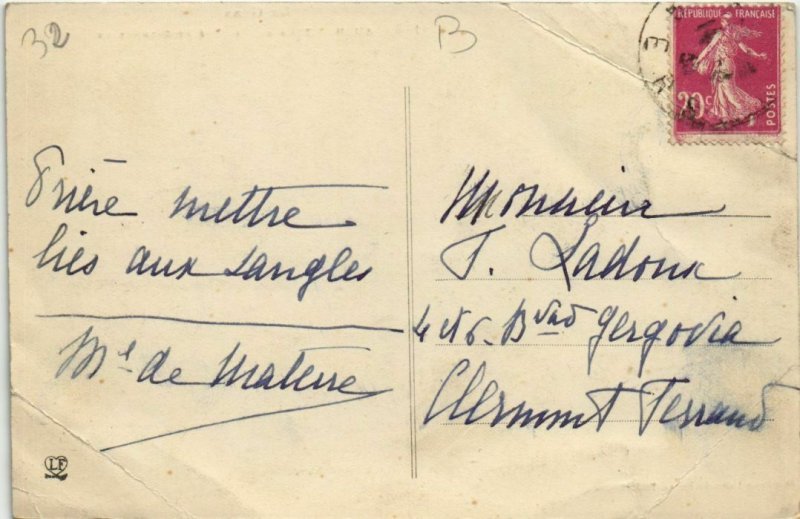 32
B
RÉPUBLIQUE FRANÇAISE
20c
POSTES
Prière mettre
liés aux sangles
Ml de
Monsieur
Ladoux
4 et 6 Bvard Gergovia
Clermont Ferrand
LF